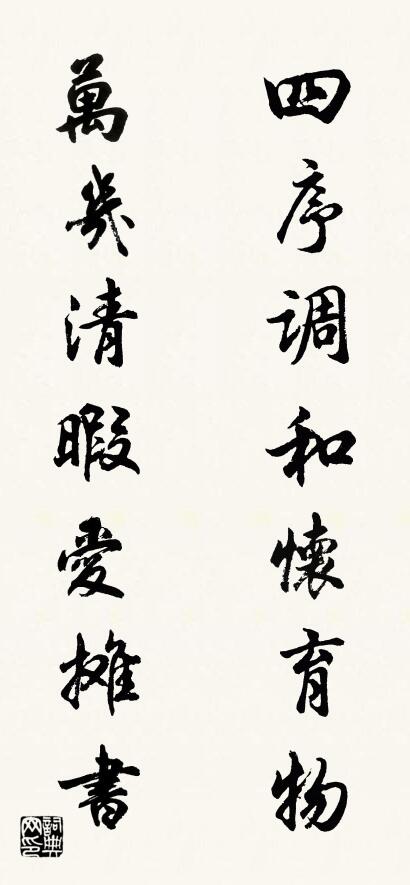 四序调和懷育物
萬幾清暇愛攤書
詞典网印